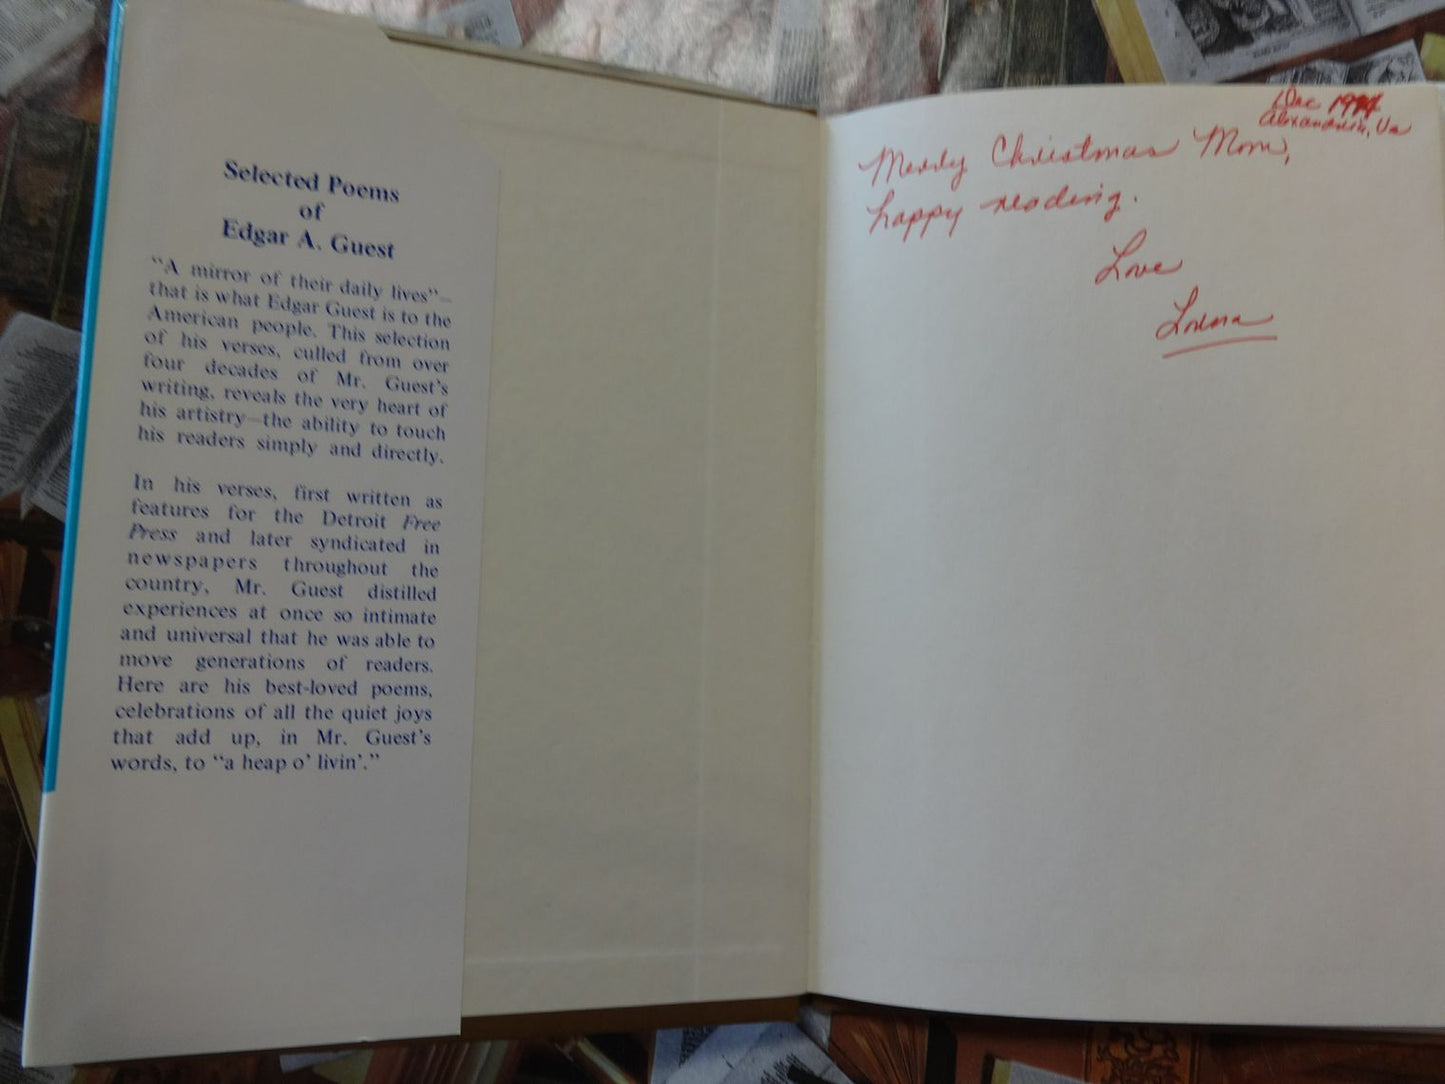 Selected Poems
of
Edgar A. Guest
"A mirror of their daily lives"—
that is what Edgar Guest is to the
American people. This selection
of his verses, culled from over
four decades of Mr. Guest's
writing, reveals the very heart of
his artistry—the ability to touch
his readers simply and directly.
In his verses, first written as
features for the Detroit Free
Press and later syndicated in
newspapers throughout the
country, Mr. Guest distilled
experiences at once so intimate
and universal that he was able to
move generations of readers.
Here are his best-loved poems,
celebrations of all the quiet joys
that add up, in Mr. Guest's
words, to "a heap o' livin'."
Dec
Alexandria, Va
Merry Christmas Mom,
happy reading.
Love